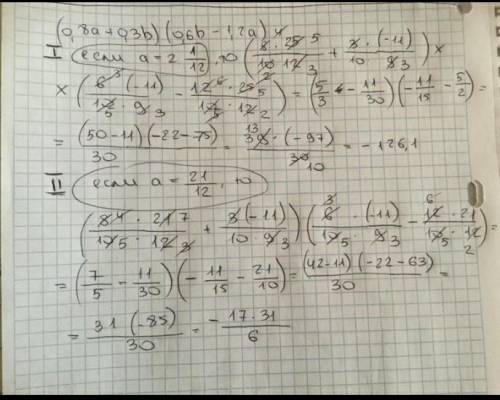 (0,8a+0,3b)(0,6b−1,2a)
I если a=2 1/12, то (8·25/10·12 + 3·(-11)/10·9) ×
× (6·(-11)/10·9 − 12·25/10·12) = (5/3 − 11/30)(−11/15 − 5/2) =
= (50-11)(-22-75)/30 = 39·(-97)/30 = −126,1
II если a=21/12, то
(8·21/10·12 + 3(-11)/10·9)(6·(-11)/10·9 − 12·21/10·12) =
= (7/5 − 11/30)(−11/15 − 21/10) = (42-11)(-22-63)/30 =
= 31(-85)/30 = −17·31/6